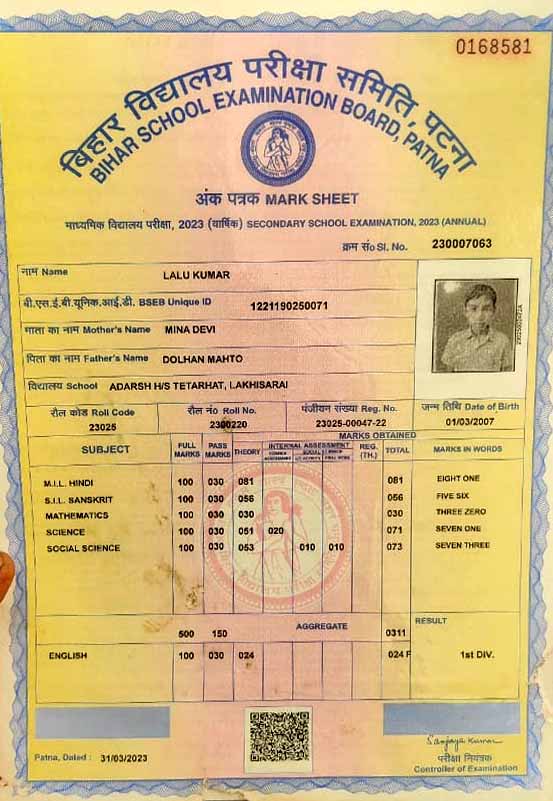 0168581
बिहार विद्यालय परीक्षा समिति, पटना
BIHAR SCHOOL EXAMINATION BOARD, PATNA
अंक पत्रक MARK SHEET
माध्यमिक विद्यालय परीक्षा, 2023 (वार्षिक) SECONDARY SCHOOL EXAMINATION, 2023 (ANNUAL)
क्रम सं० Sl. No. 230007063
नाम Name LALU KUMAR
बी.एस.ई.बी.यूनिक.आई.डी. BSEB Unique ID 1221190250071
माता का नाम Mother's Name MINA DEVI
पिता का नाम Father's Name DOLHAN MAHTO
विद्यालय School ADARSH H/S TETARHAT, LAKHISARAI
रौल कोड Roll Code रौल नं० Roll No. पंजीयन संख्या Reg. No. जन्म तिथि Date of Birth
23025 2300220 23025-00047-22 01/03/2007
MARKS OBTAINED
SUBJECT FULL MARKS PASS MARKS THEORY INTERNAL ASSESSMENT REG. (TH.) TOTAL MARKS IN WORDS
M.I.L. HINDI 100 030 081 081 EIGHT ONE
S.I.L. SANSKRIT 100 030 056 056 FIVE SIX
MATHEMATICS 100 030 030 030 THREE ZERO
SCIENCE 100 030 051 020 071 SEVEN ONE
SOCIAL SCIENCE 100 030 053 010 010 073 SEVEN THREE
500 150 AGGREGATE 0311 RESULT
ENGLISH 100 030 024 024 F 1st DIV.
Sanjaya Kumar
Patna, Dated : 31/03/2023
परीक्षा नियंत्रक
Controller of Examination